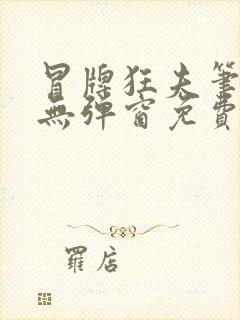 冒牌狂夫筆
無彈窗免費
羅店